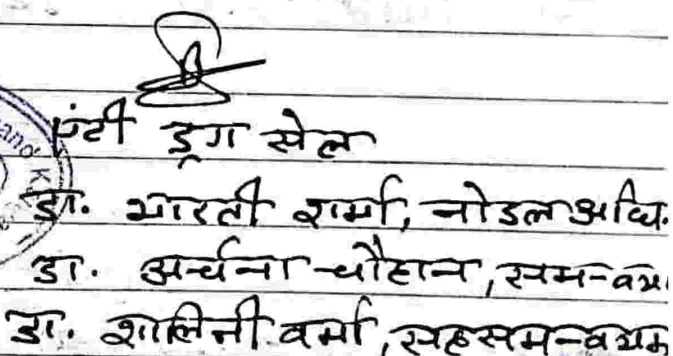 and K
एंटी ड्रग सेल
डा. भारती शर्मा, नोडल अधि.
डा. अर्चना चौहान, समन्वय
डा. शालिनी वर्मा, सहसमन्वयक